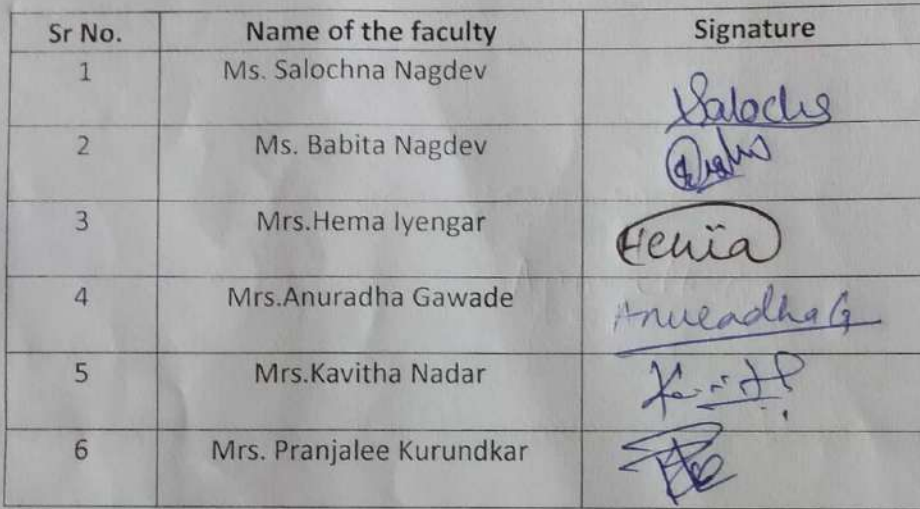 Sr No. Name of the faculty Signature
1 Ms. Salochna Nagdev
2 Ms. Babita Nagdev
3 Mrs.Hema Iyengar Hema
4 Mrs.Anuradha Gawade Anuradha G
5 Mrs.Kavitha Nadar
6 Mrs. Pranjalee Kurundkar